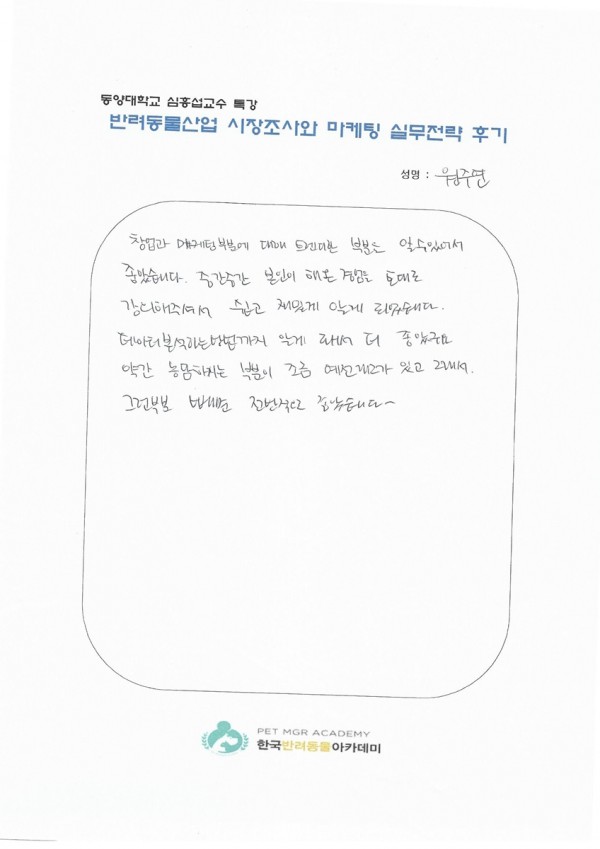 동양대학교 심흥섭교수 특강
반려동물산업 시장조사와 마케팅 실무전략 후기
성명 :
창업과 마케팅부분에 대해 부분을 알수있어서
좋았습니다. 중간중간 본인이 해온 경험을 토대로
강의해주셔서 쉽고 재밌게 알게 되었습니다.
데이터분석하는방법까지 알게 되서 더 좋았구요
약간 농담하시는 부분이 조금 있고 그래서.
그런부분 빼면 전반적으로 좋았습니다~
PET MGR ACADEMY
한국반려동물아카데미